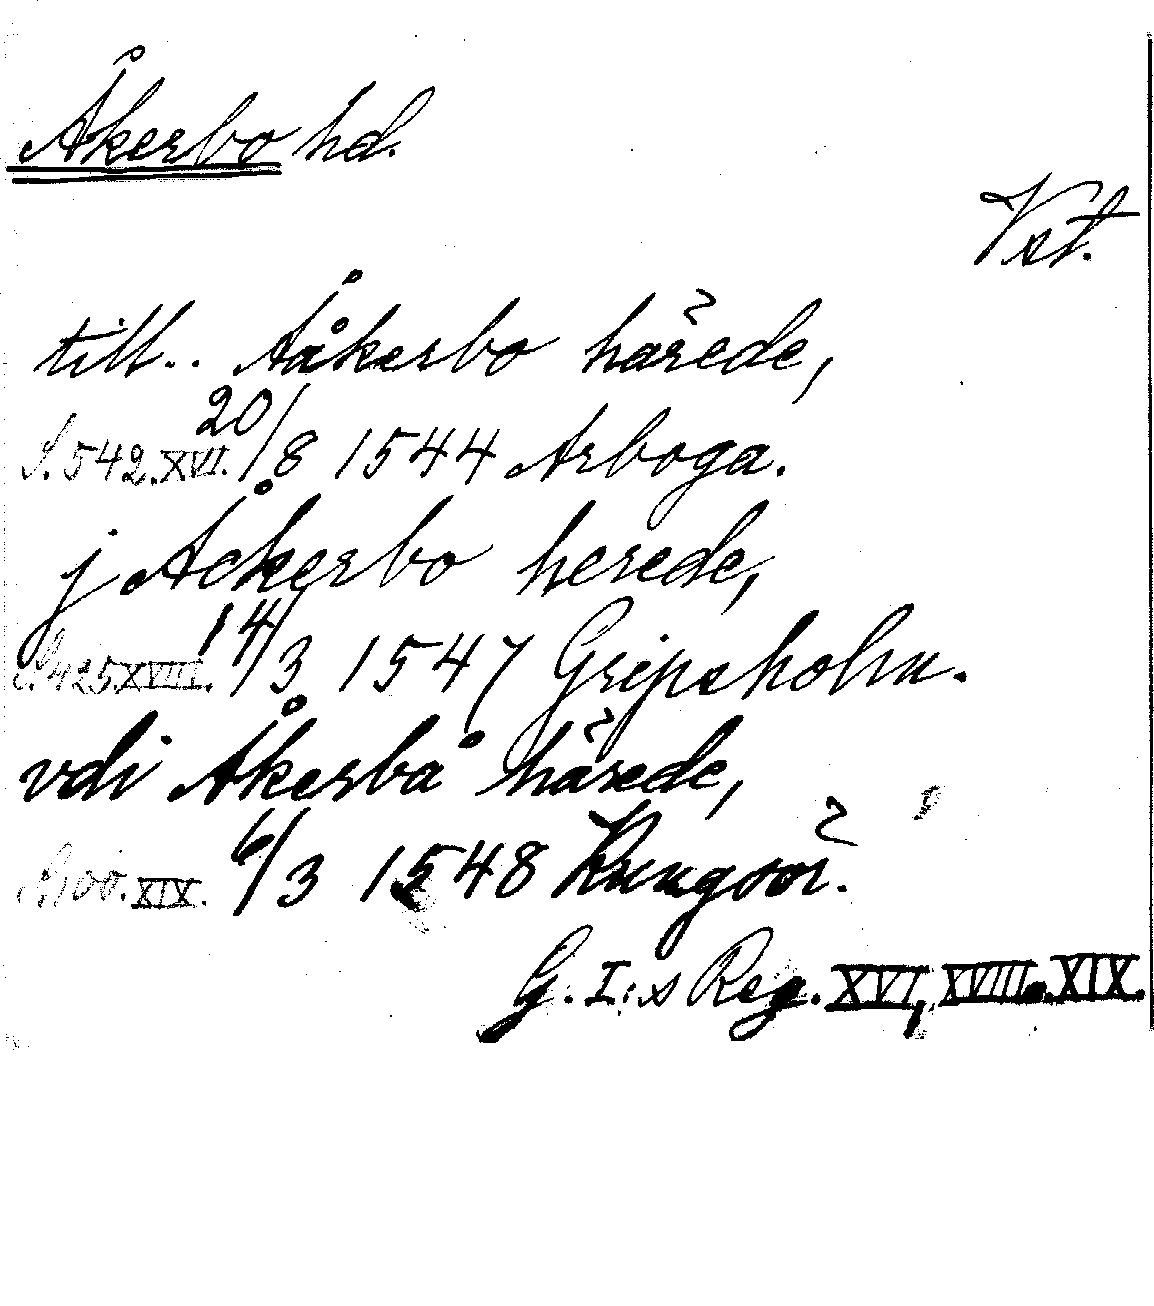 Åkerbo hd.
Vst.
till.. Aåkerbo härede,
S. 542. XVI. 20/8 1544 Arboga.
j Åckerbo herede,
S. 425 XVIII. 14/3 1547 Gripsholm.
vdi Åkerbå härede,
S. 100. XIX. 6/3 1548 Kungsör.
G. I:s Reg. XVI, XVIII o. XIX.